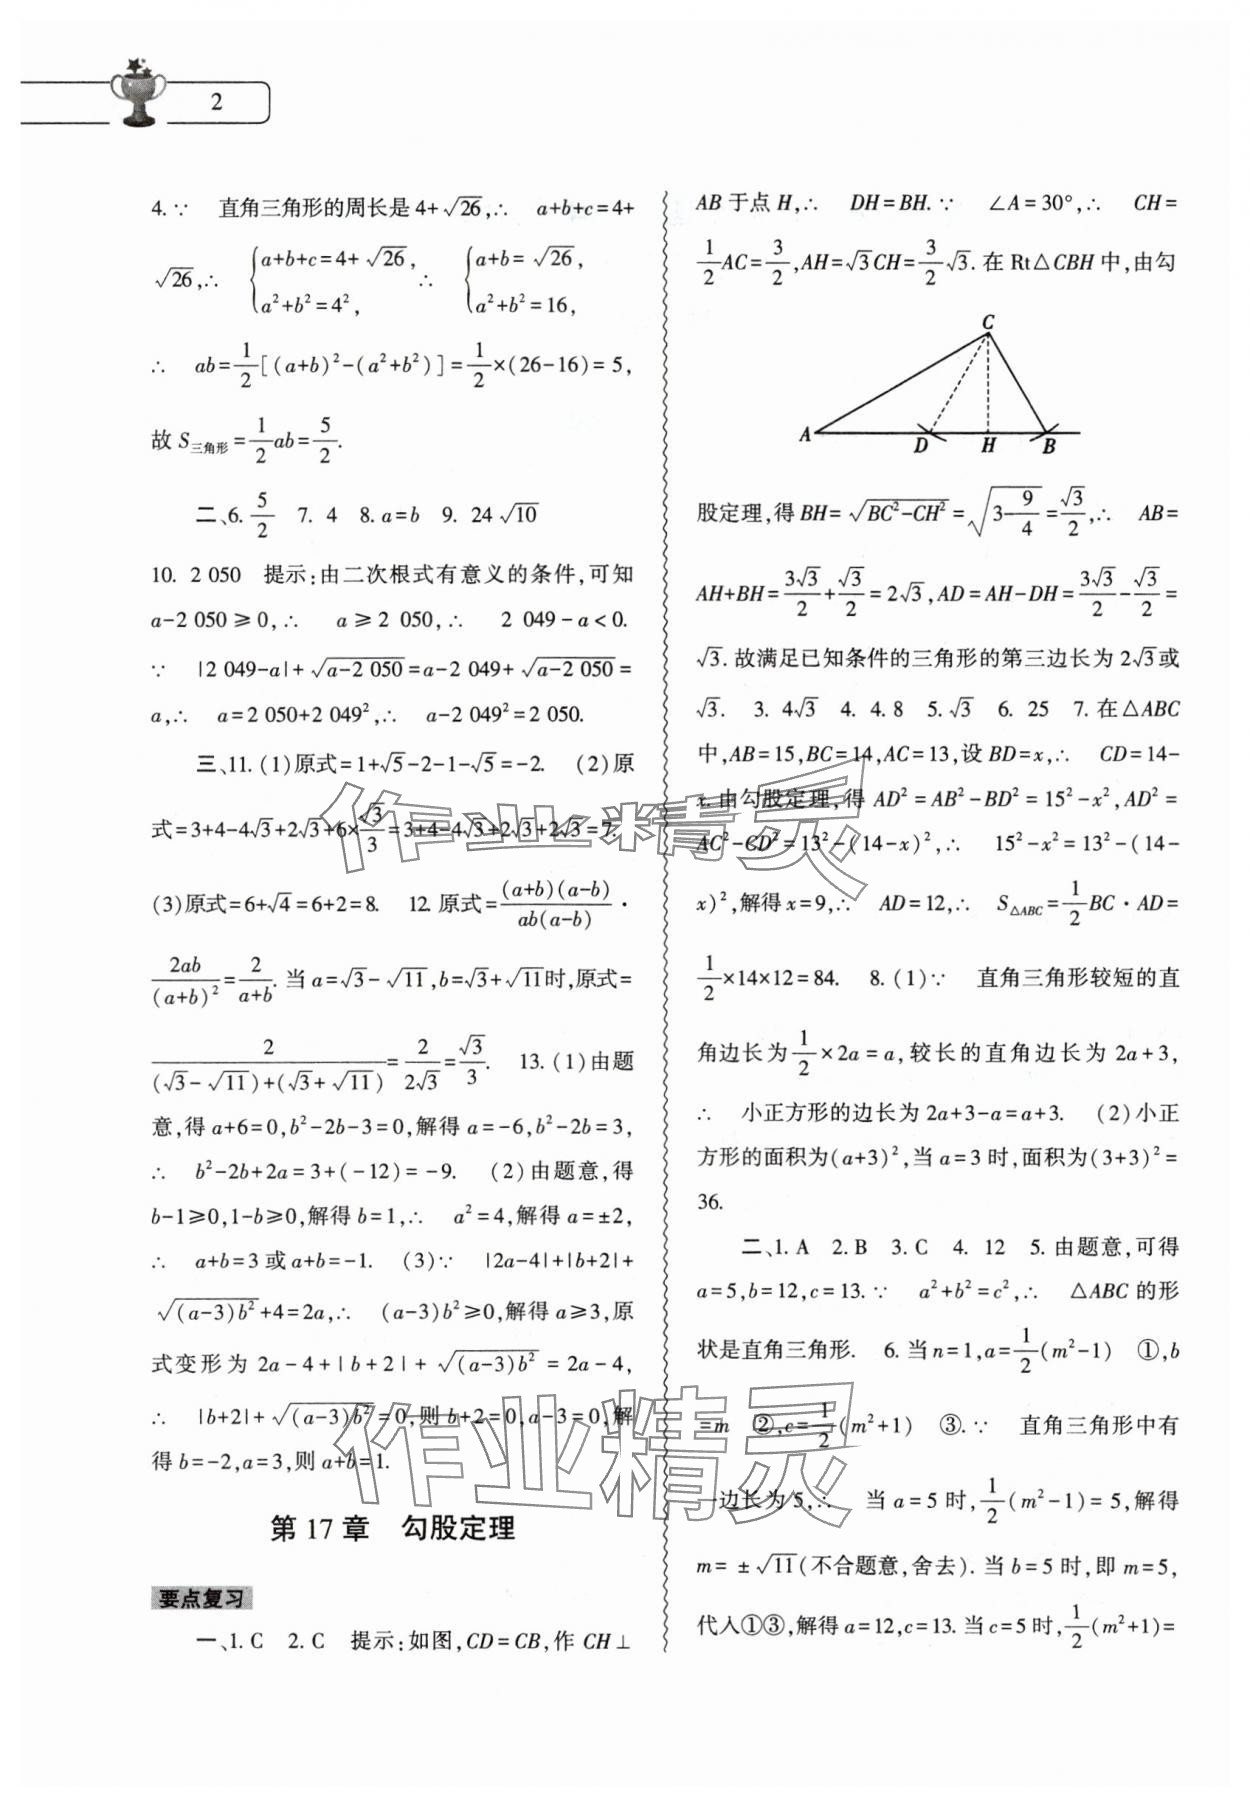 2
4.∵ 直角三角形的周长是4+√26,∴ a+b+c=4+
√26,∴ {a+b+c=4+√26, a²+b²=4², ∴ {a+b=√26, a²+b²=16,
∴ ab=1/2[(a+b)²-(a²+b²)]=1/2×(26-16)=5,
故 S三角形=1/2ab=5/2.
二、6. 5/2 7. 4 8. a=b 9. 24√10
10. 2 050 提示:由二次根式有意义的条件,可知
a-2 050≥0,∴ a≥2 050,∴ 2 049-a<0.
∵ |2 049-a|+√(a-2 050)=a-2 049+√(a-2 050)=
a,∴ a=2 050+2 049²,∴ a-2 049²=2 050.
三、11. (1)原式=1+√5-2-1-√5=-2. (2)原
式=3+4-4√3+2√3+6×√3/3=3+4-4√3+2√3+2√3=7.
(3)原式=6+√4=6+2=8. 12. 原式=(a+b)(a-b)/ab(a-b)·
2ab/(a+b)²=2/(a+b). 当 a=√3-√11,b=√3+√11时,原式=
2/((√3-√11)+(√3+√11))=2/2√3=√3/3. 13. (1)由题
意,得 a+6=0,b²-2b-3=0,解得 a=-6,b²-2b=3,
∴ b²-2b+2a=3+(-12)=-9. (2)由题意,得
b-1≥0,1-b≥0,解得 b=1,∴ a²=4,解得 a=±2,
∴ a+b=3 或 a+b=-1. (3)∵ |2a-4|+|b+2|+
√((a-3)b²)+4=2a,∴ (a-3)b²≥0,解得 a≥3,原
式变形为 2a-4+|b+2|+√((a-3)b²)=2a-4,
∴ |b+2|+√((a-3)b²)=0,则 b+2=0,a-3=0,解
得 b=-2,a=3,则 a+b=1.
第 17 章 勾股定理
要点复习
一、1. C 2. C 提示:如图,CD=CB,作 CH⊥
AB 于点 H,∴ DH=BH. ∵ ∠A=30°,∴ CH=
1/2AC=3/2,AH=√3CH=3/2√3. 在 Rt△CBH 中,由勾
C
A
D
H
B
股定理,得 BH=√(BC²-CH²)=√(3-9/4)=√3/2,∴ AB=
AH+BH=3√3/2+√3/2=2√3,AD=AH-DH=3√3/2-√3/2=
√3. 故满足已知条件的三角形的第三边长为 2√3或
√3. 3. 4√3 4. 4.8 5. √3 6. 25 7. 在△ABC
中,AB=15,BC=14,AC=13,设 BD=x,∴ CD=14-
x. 由勾股定理,得 AD²=AB²-BD²=15²-x²,AD²=
AC²-CD²=13²-(14-x)²,∴ 15²-x²=13²-(14-
x)²,解得 x=9,∴ AD=12,∴ S△ABC=1/2BC·AD=
1/2×14×12=84. 8. (1)∵ 直角三角形较短的直
角边长为1/2×2a=a,较长的直角边长为 2a+3,
∴ 小正方形的边长为 2a+3-a=a+3. (2)小正
方形的面积为(a+3)²,当 a=3 时,面积为(3+3)²=
36.
二、1. A 2. B 3. C 4. 12 5. 由题意,可得
a=5,b=12,c=13. ∵ a²+b²=c²,∴ △ABC 的形
状是直角三角形. 6. 当 n=1,a=1/2(m²-1) ①,b
=m ②,c=1/2(m²+1) ③. ∵ 直角三角形中有
一边长为 5,∴ 当 a=5 时,1/2(m²-1)=5,解得
m=±√11(不合题意,舍去). 当 b=5 时,即 m=5,
代入①③,解得 a=12,c=13. 当 c=5 时,1/2(m²+1)=
作业精灵
作业精灵